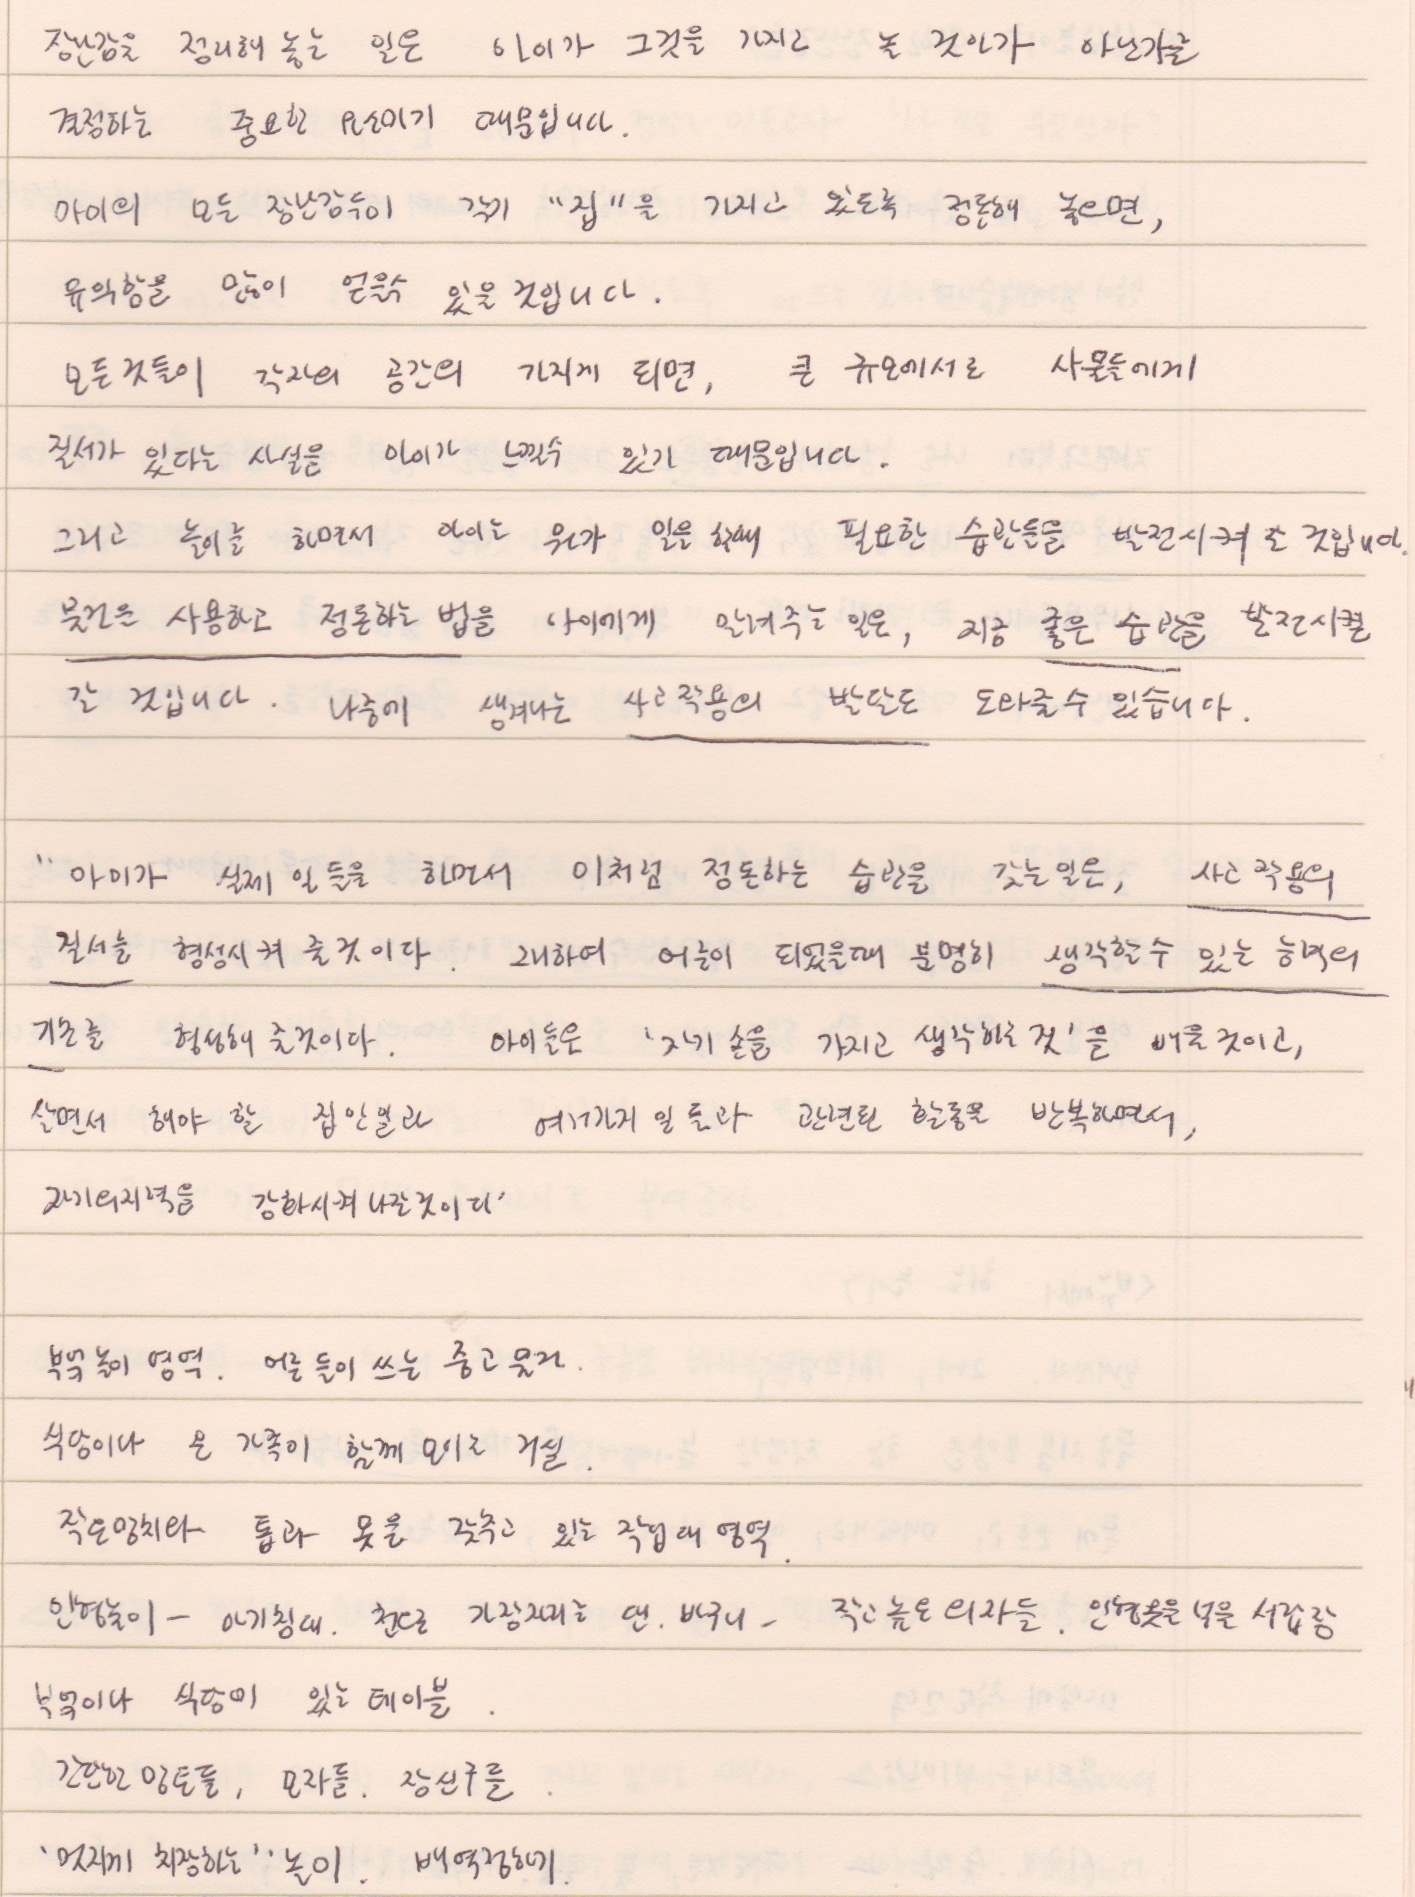 장난감을 정리해 놓는 일은 아이가 그것을 가지고 놀 것인가 아닌가를
결정하는 중요한 요소이기 때문입니다.
아이의 모든 장난감들이 각기 "집"을 가지고 있도록 정돈해 놓으면,
유익함을 많이 얻을수 있을 것입니다.
모든것들이 각자의 공간의 가지게 되면, 큰 규모에서로 사물들에게
질서가 있다는 사실을 아이가 느낄수 있기 때문입니다.
그리고 놀이를 하면서 아이는 뭔가 일을 할때 필요한 습관들을 발전시켜 갈 것입니다.
물건은 사용하고 정돈하는 법을 아이에게 알려주는 일은, 지금 좋은 습관을 발전시켜
갈 것입니다. 나중에 생겨나는 사고작용의 발달도 도와줄수 있습니다.
"아이가 실제 일들을 하면서 이처럼 정돈하는 습관을 갖는일은, 사고 작용의
질서를 형성시켜 줄것이다. 그래하여 어른이 되었을때 분명히 생각할수 있는 능력의
기초를 형성해 줄것이다. 아이들은 '자기 손을 가지고 생각하는 것'을 배울것이고,
살면서 해야 할 집안일과 여러가지 일들과 관련된 활동을 반복하면서,
자기의지력을 강화시켜 나갈것이다'
부엌놀이 영역. 어른들이 쓰는 중고 물건.
식당이나 온 가족이 함께 모이는 거실.
작은망치와 톱과 못을 갖추고 있는 작업대 영역.
인형놀이 - 아기침대. 천으로 가장자리를 댄. 바구니 - 작고 높은 의자들. 인형옷을 넣을 서랍장
부엌이나 식당에 있는 테이블.
간단한 망토들, 모자들. 장신구들.
'멋지게 치장하는' 놀이. 배역정하기.